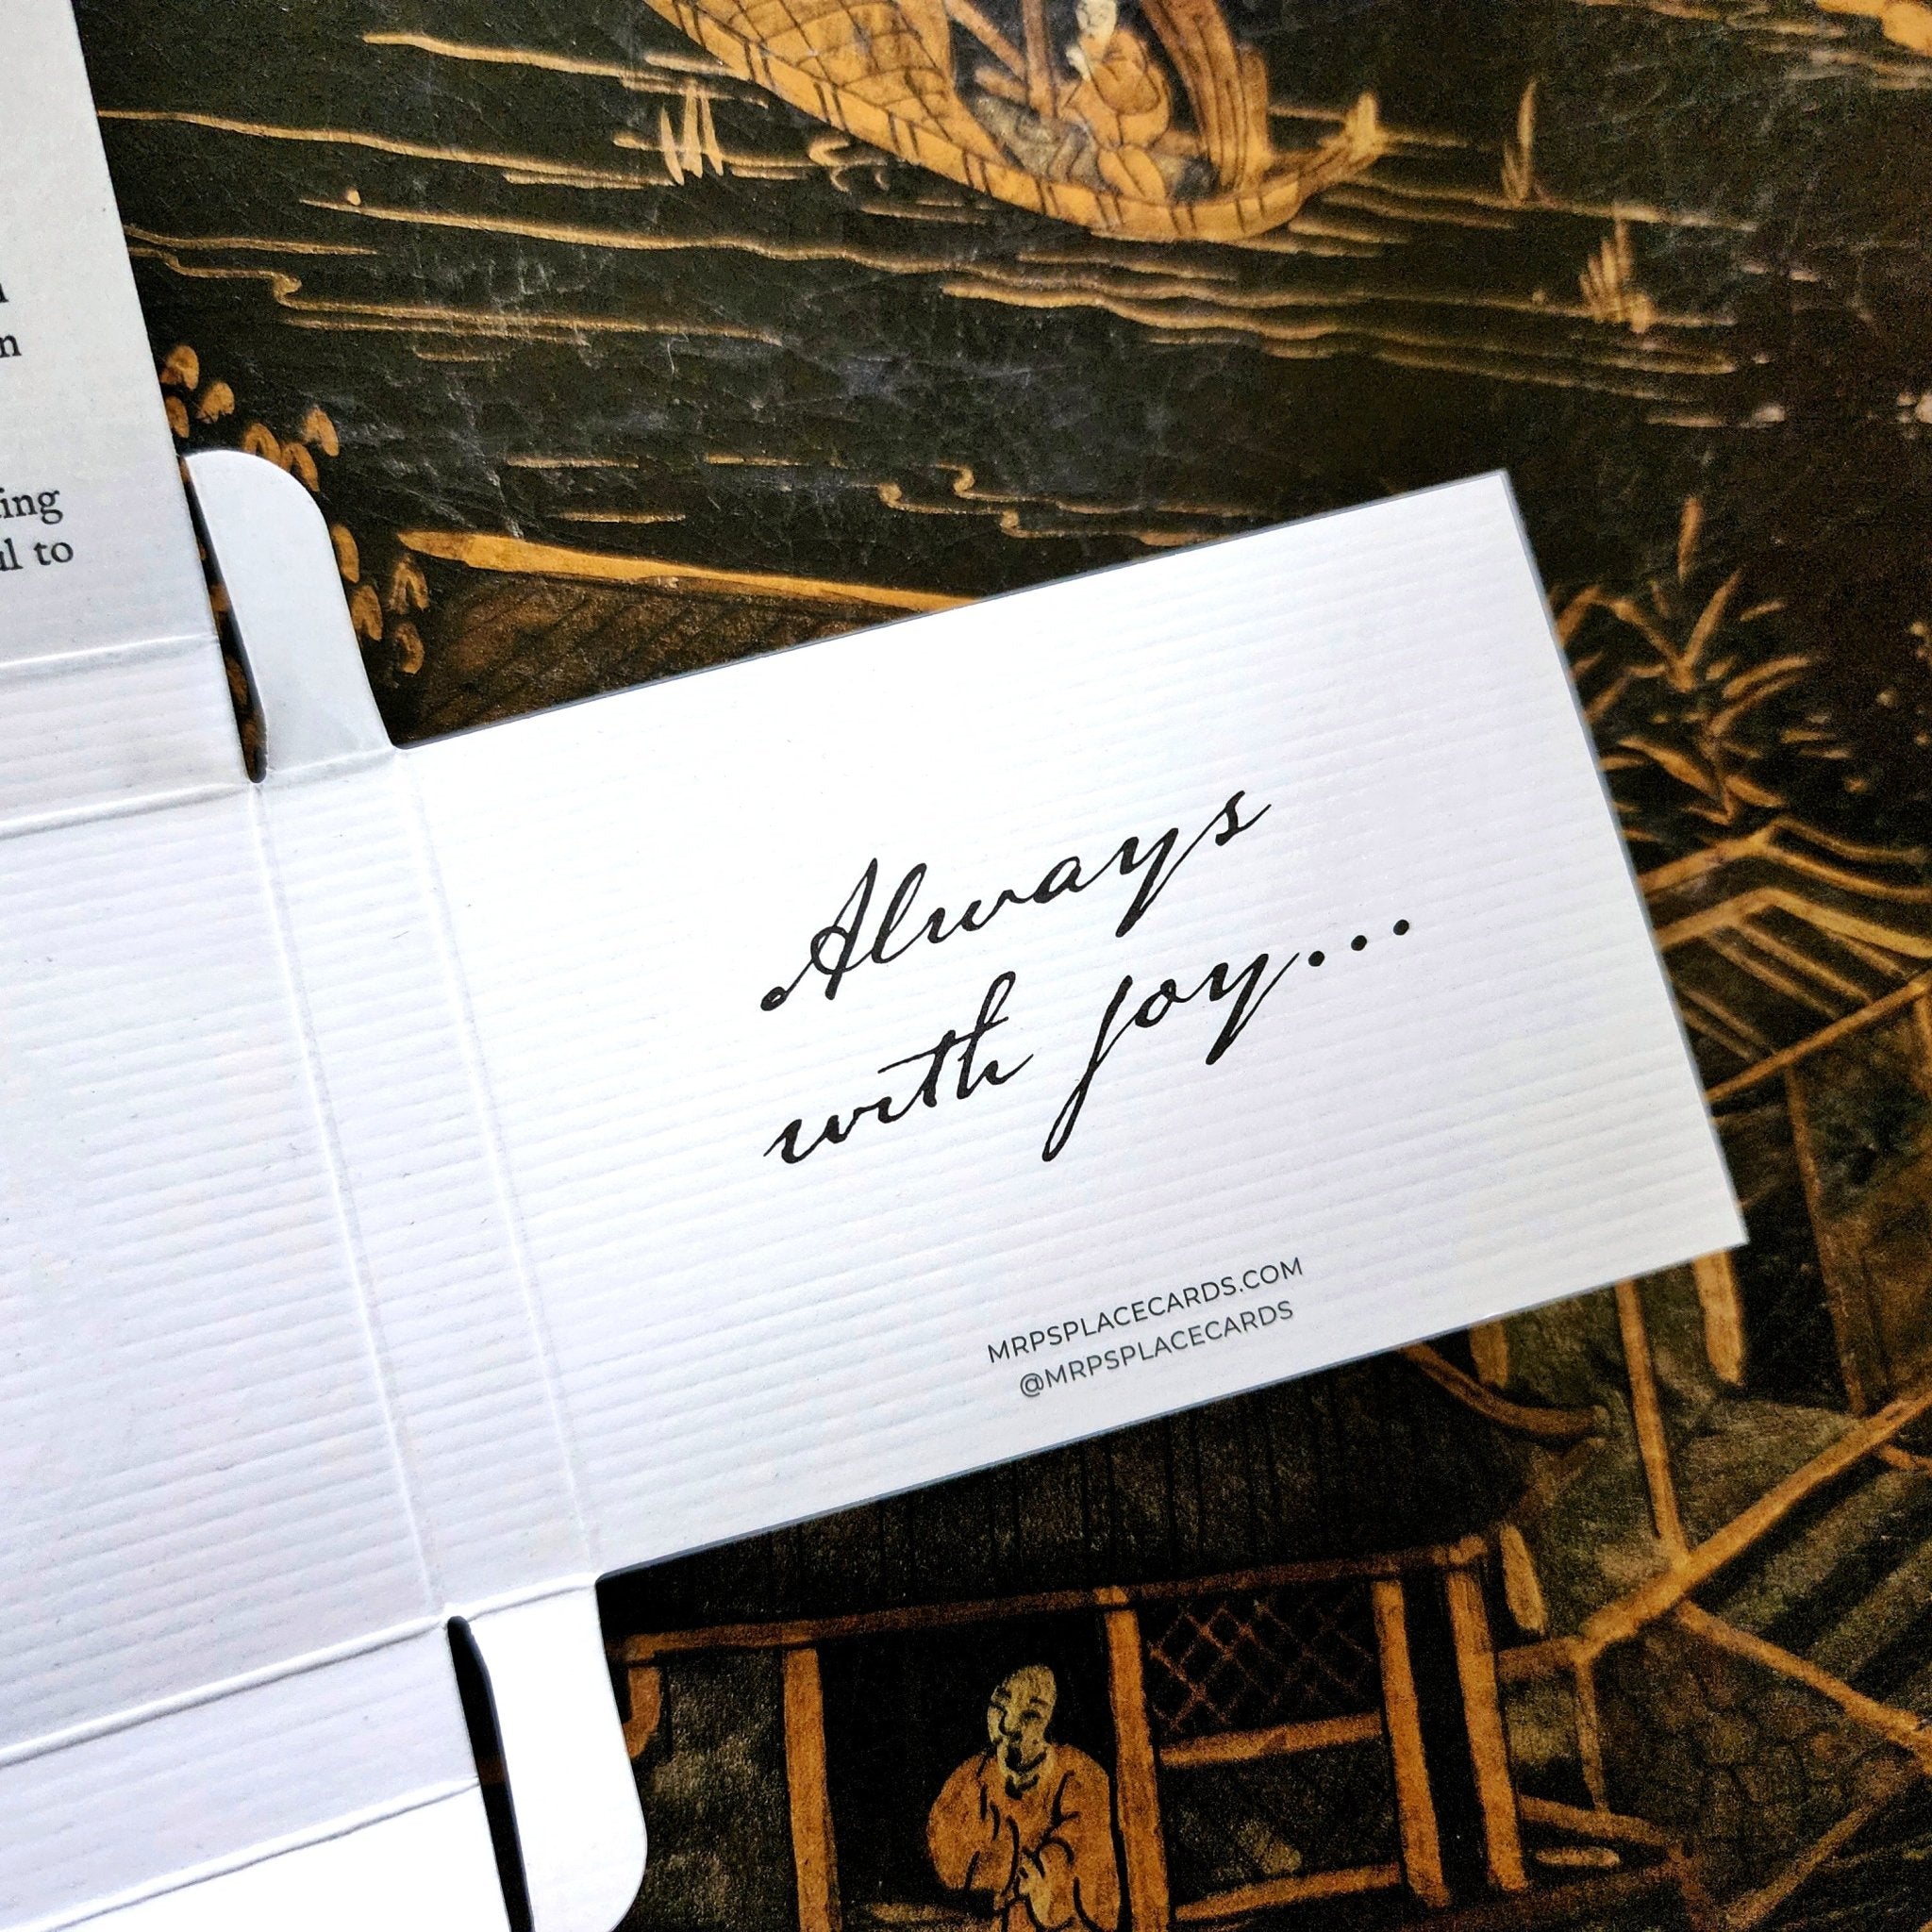 to
Always
with joy...
MRPSPLACECARDS.COM
@MRPSPLACECARDS